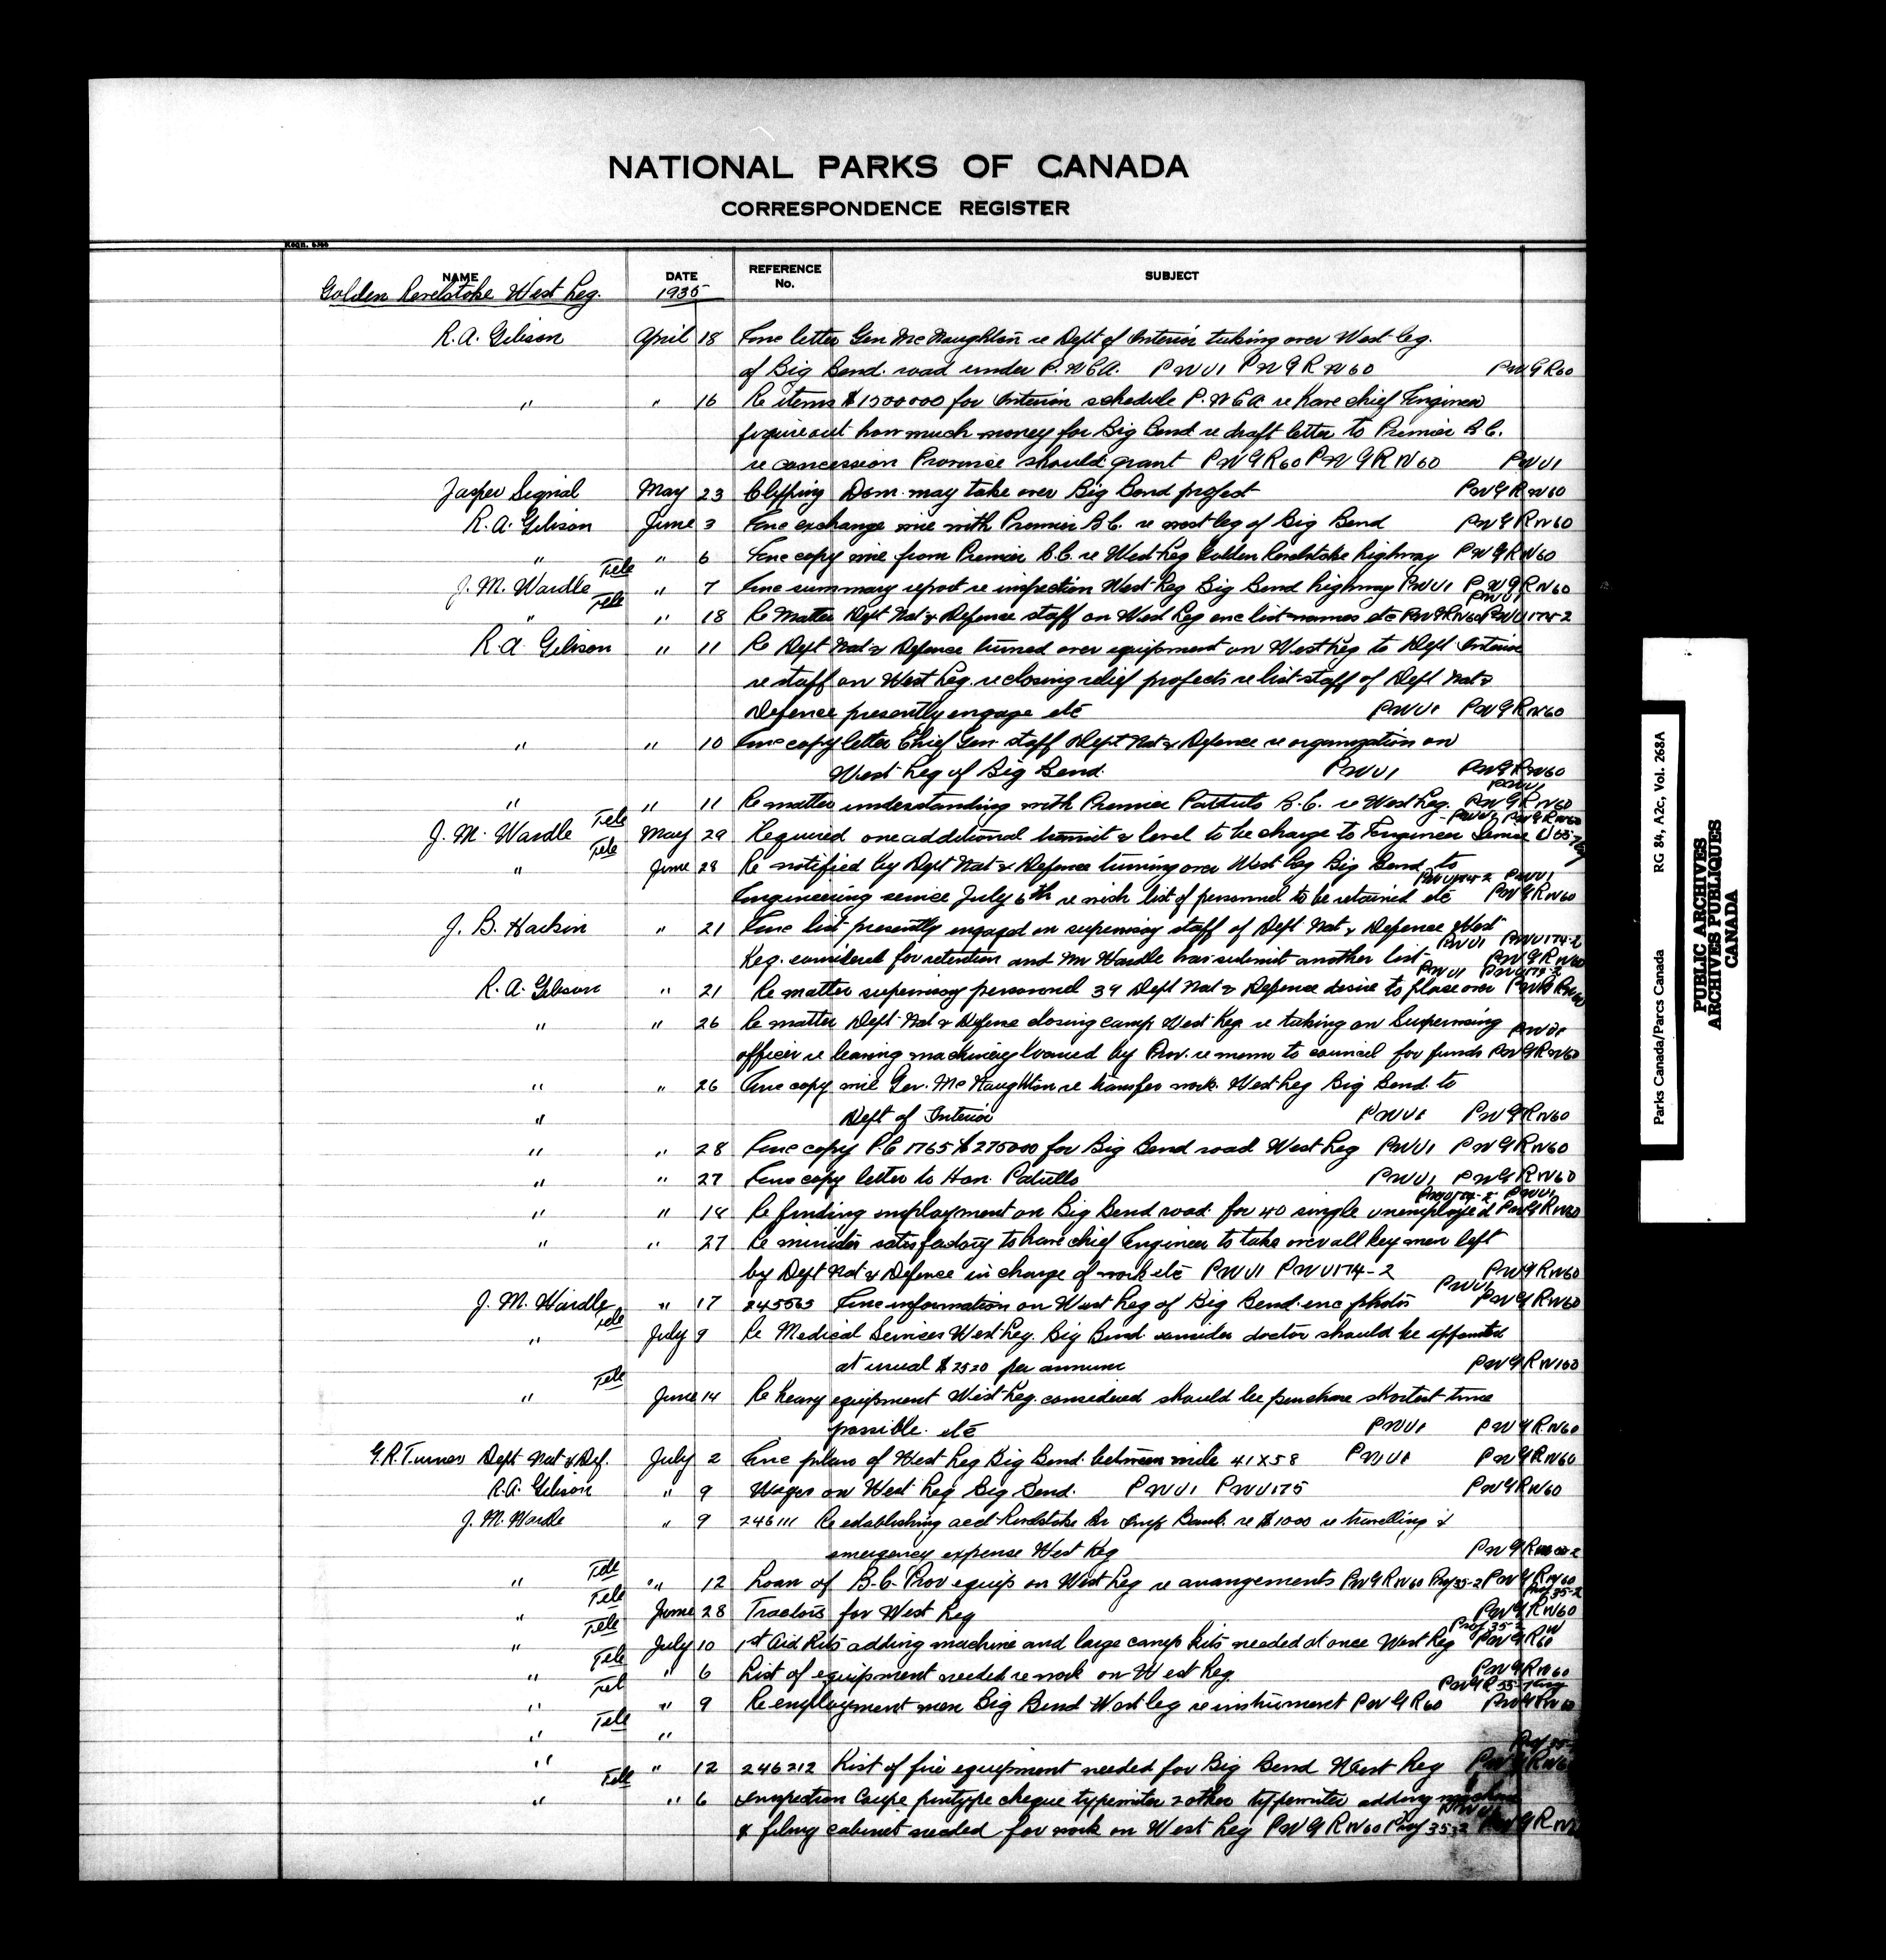 NATIONAL PARKS OF CANADA
CORRESPONDENCE REGISTER
NAME DATE REFERENCE No. SUBJECT
Golden Revelstoke West Leg. 1935
R.A. Gibson April 18 Enc letter Gen McNaughton re Dept of Interior taking over West leg.
of Big Bend. road under P.W.C.A. PWU1 PWGRW60 PWGR60
" " 16 Re items $1500000 for Interior schedule P.W.C.A re Have chief Engineer
figure out how much money for Big Bend re draft letter to Premier B.C.
re concession Province should grant PWGR60 PWGRW60 PWU1
Jasper Signal May 23 Clipping Dom. may take over Big Bend project PWGRW60
R.A. Gibson June 3 Enc exchange wire with Premier B.C. re west leg of Big Bend PWGRW60
" " 6 Enc copy wire from Premier B.C. re West Leg Golden Revelstoke highway PWGRW60
J.M. Wardle Tele " 7 Enc summary report re inspection West Leg Big Bend highway PWU1 PWGRW60
" Tele " 18 Re Matter Dept Nat'l Defence staff on West Leg enc list names etc PWGRW60 PWU174-2 PWU1
R.A. Gibson " 11 Re Dept Nat'l Defence turned over equipment on West Leg to Dept Interior
re staff on West Leg. re closing relief projects re list staff of Dept Nat'l
Defence presently engage etc PWU1 PWGRW60
" " 10 Enc copy letter Chief Gen. staff Dept Nat'l Defence re organization on
West Leg of Big Bend. PWU1 PWGRW60
" " 11 Re matter understanding with Premier Pattullo B.C. re West Leg. PWU1 PWGRW60
J.M. Wardle Tele May 29 Required one additional transit & level to be charge to Engineer PWU1 PWGRW60
" Tele June 29 Re notified by Dept Nat'l Defence turning over West Leg Big Bend to
Engineering service July 6th re wish list of personnel to be retained etc PWU174-2 PWU1 PWGRW60
J.B. Harkin " 21 Enc list presently engaged on supervisory staff of Dept Nat'l Defence West
Leg. considered for retention and Mr Wardle has submit another list PWU1 PWU174-2 PWGRW60
R.A. Gibson " 21 Re matter supervisory personnel 34 Dept Nat'l Defence desire to place over PWU1 PWU174-2 PWGRW60
" " 26 Re matter Dept Nat'l Defence closing camp West Leg re taking on Supervising
officer re leaving machinery loaned by Prov. re memo to council for funds PWU1 PWGRW60
" " 26 Enc copy wire Gen. McNaughton re transfer work. West Leg Big Bend. to
" Dept of Interior PWU1 PWGRW60
" " 28 Enc copy P.C 1765 $275000 for Big Bend road West Leg PWU1 PWGRW60
" " 27 Enc copy letter to Hon. Patullo PWU1 PWGRW60
" " 14 Re finding employment on Big Bend road for 40 single unemployed PWU174-2 PWU1 PWGRW60
" " 27 Re minister satisfactory to have chief Engineer to take over all key men left
by Dept Nat'l Defence in charge of work etc PWU1 PWU174-2 PWGRW60
J.M. Wardle " 17 245563 Enc information on West Leg of Big Bend. enc photos PWU1 PWGRW60
" Tele July 9 Re Medical Services West Leg. Big Bend consider doctor should be appointed
at usual $2520 per annum PWGRW160
" Tele June 14 Re heavy equipment West Leg. considered should be purchase shortest time
possible. etc PWU1 PWGRW60
G.R. Turner Dept Nat'l Def. July 2 Enc plans of West Leg Big Bend. between mile 41X58 PWU1 PWGRW60
R.A. Gibson " 9 Wages on West Leg Big Bend. PWU1 PWU175 PWGRW60
J.M. Wardle " 9 246111 Re establishing acct Revelstoke Br Imp. Bank. re $1000 re travelling &
emergency expense West Leg
" Tele " 12 Loan of B.C. Prov equip on West Leg re arrangements PWGRW60 PWGRW60
" Tele June 28 Tractors for West Leg PWGRW60
" Tele July 10 1st Aid Kits adding machine and large camp kits needed at once West Leg PWGRW60
" Tele " 6 List of equipment needed re work on West Leg. PWGRW60
" Tel " 9 Re employment men Big Bend West leg re instrument PWGR60 PWGRW60
" Tele "
" " 12 246212 List of fire equipment needed for Big Bend West Leg PWGRW60
" Tele " 6 Inspection Coupe cheque typewriter 2 other typewriter adding machine
& filing cabinet needed for work on West Leg PWGRW60
Parks Canada/Parcs Canada RG 84, A2c, Vol. 268A
PUBLIC ARCHIVES
ARCHIVES PUBLIQUES
CANADA